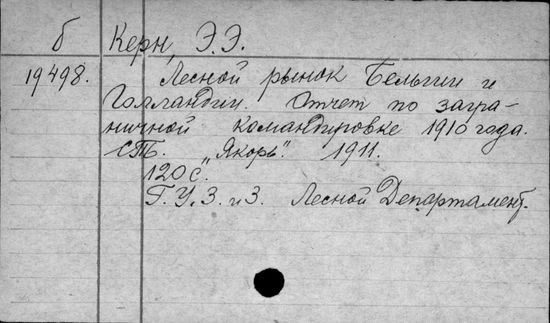 б Керн, Э.Э.
19498. Лесной рынок Бельгии и
Голландии. Отчет по загра-
ничной командировке 1910 года.
СПБ. „Якорь". 1911.
120 с.
Г.У.З. и З. Лесной Департамент.